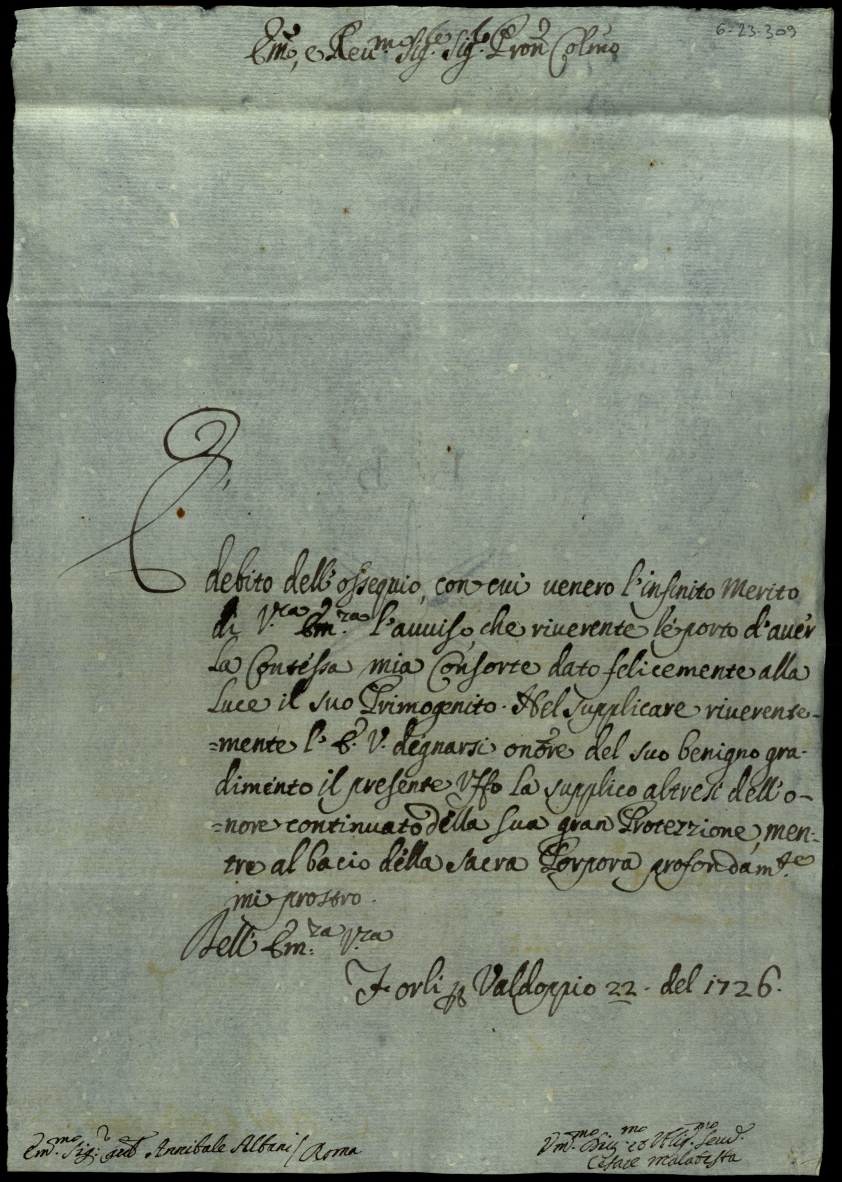 6-23-309
Em̃o, e Reu.mo Sig.re Sig.re Pron Colmo
È
debito dell'ossequio, con cui venero l'infinito Merito
di V.ra Em.za l'auuiso, che riverente le porto d'aver
la Contessa mia Consorte dato felicemente alla
Luce il suo Primogenito. Nel supplicare riverente-
=mente l'E. V. degnarsi onõre del suo benigno gra-
dimento il presente Uffo la supplico altresi dell'o-
=nore continuato della sua gran Protezzione, men-
tre al bacio della Sacra Porpora profondam.te
mi prostro.
Dell'Em.za V.ra
Forli p Valdoppio 22. del 1726.
Em.mo Sig.r Annibale Albani / Roma
Um.mo et Oblig.mo Seru.
Cesare Malatesta